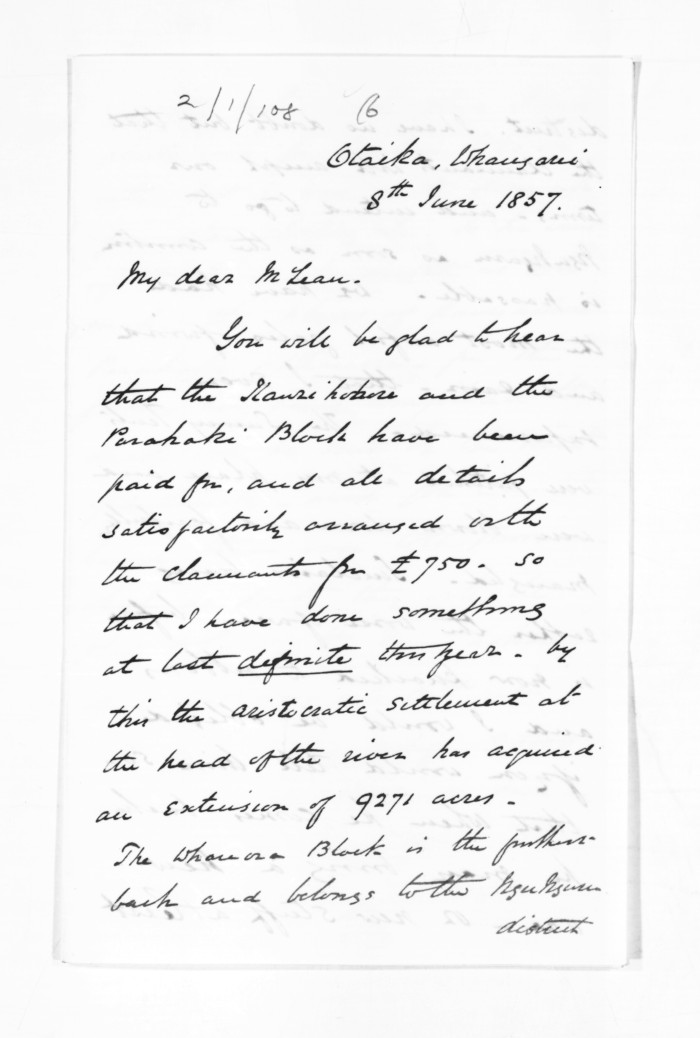 2/1/108 (6
Otaika, Whangarei
8th June 1857.
My dear McLean.
You will be glad to hear
that the Kaurihohore and the
Parahaki Block have been
paid for, and all details
satisfactorily arranged with
the claimants for £750. so
that I have done something
at last definite this year. by
this the aristocratic settlement at
the head of the river has acquired
an extension of 9271 acres.
The Whareora Block is the further
back and belongs to the Ngunguru
district